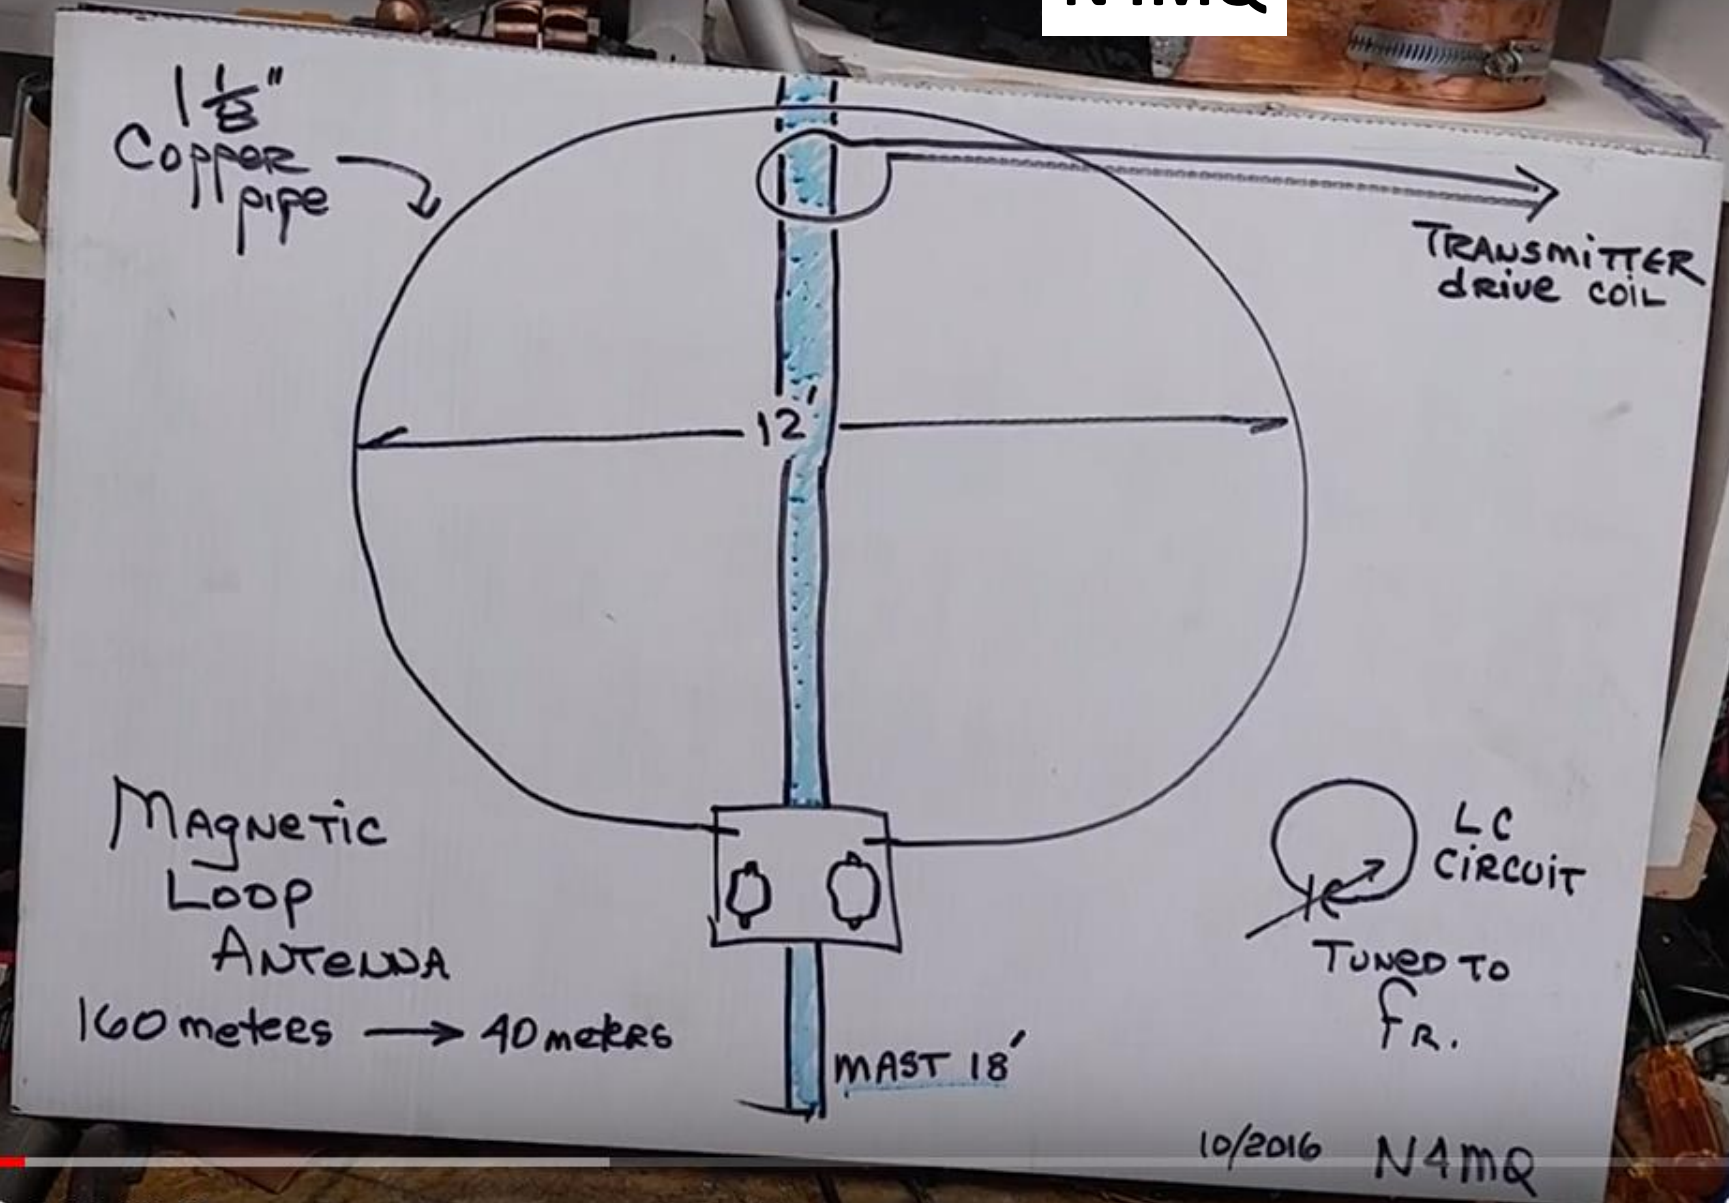 N4MQ
1 1/8"
Copper
pipe
TRANSMITTER
drive coil
12'
Magnetic
Loop
Antenna
160 meters → 40 meters
LC
circuit
Tuned to
fR.
MAST 18'
10/2016 N4MQ